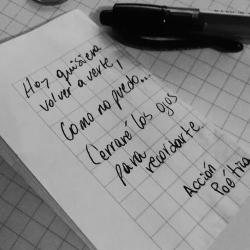 Hoy quisiera
volver a verte,
Como no puedo...
Cerraré los ojos
para recordarte.
Acción
Poética